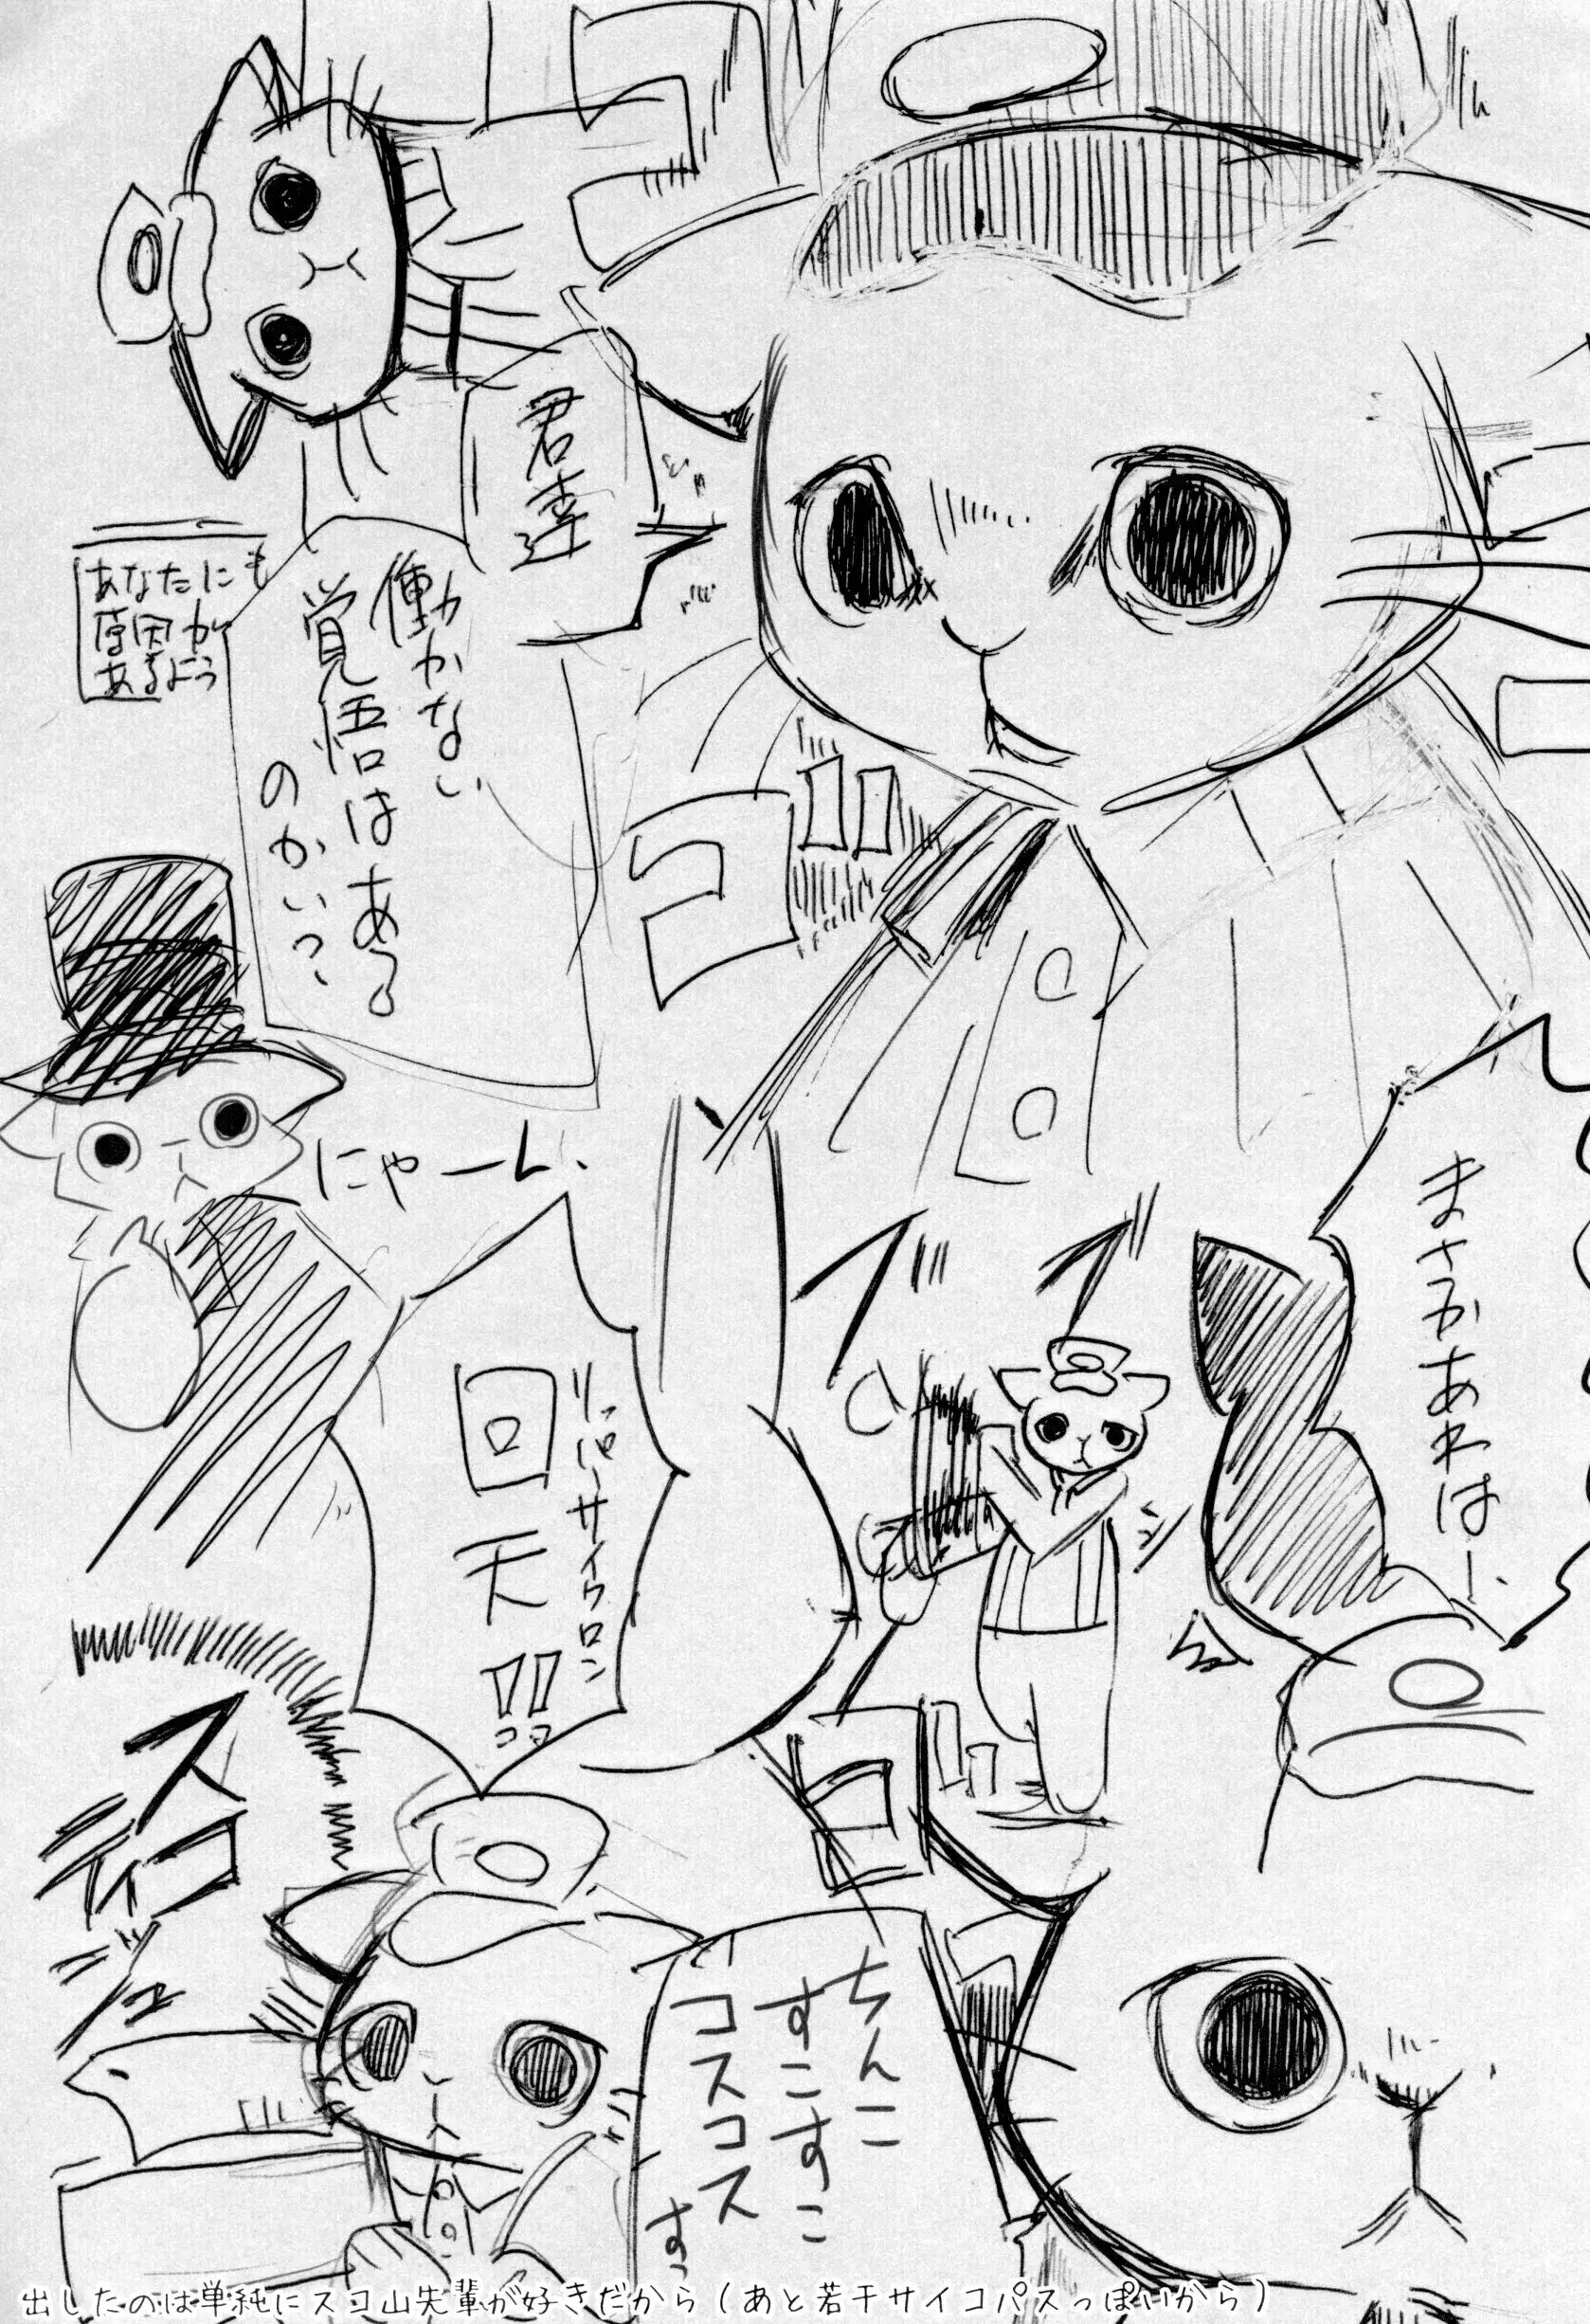 君達
働かない
覚悟はある
のかい?
あなたにも
原因が
あるよう
ゴゴ
にゃーん
まさかあれはー
ブ
ブ
リボルサイクロン
回天!!
ゴゴ
スディコ
ジュ
ちんこ
すこすこ
コスコス
すっ
出したのは単純にスコ山先輩が好きだから(あと若干サイコパスっぽいから)